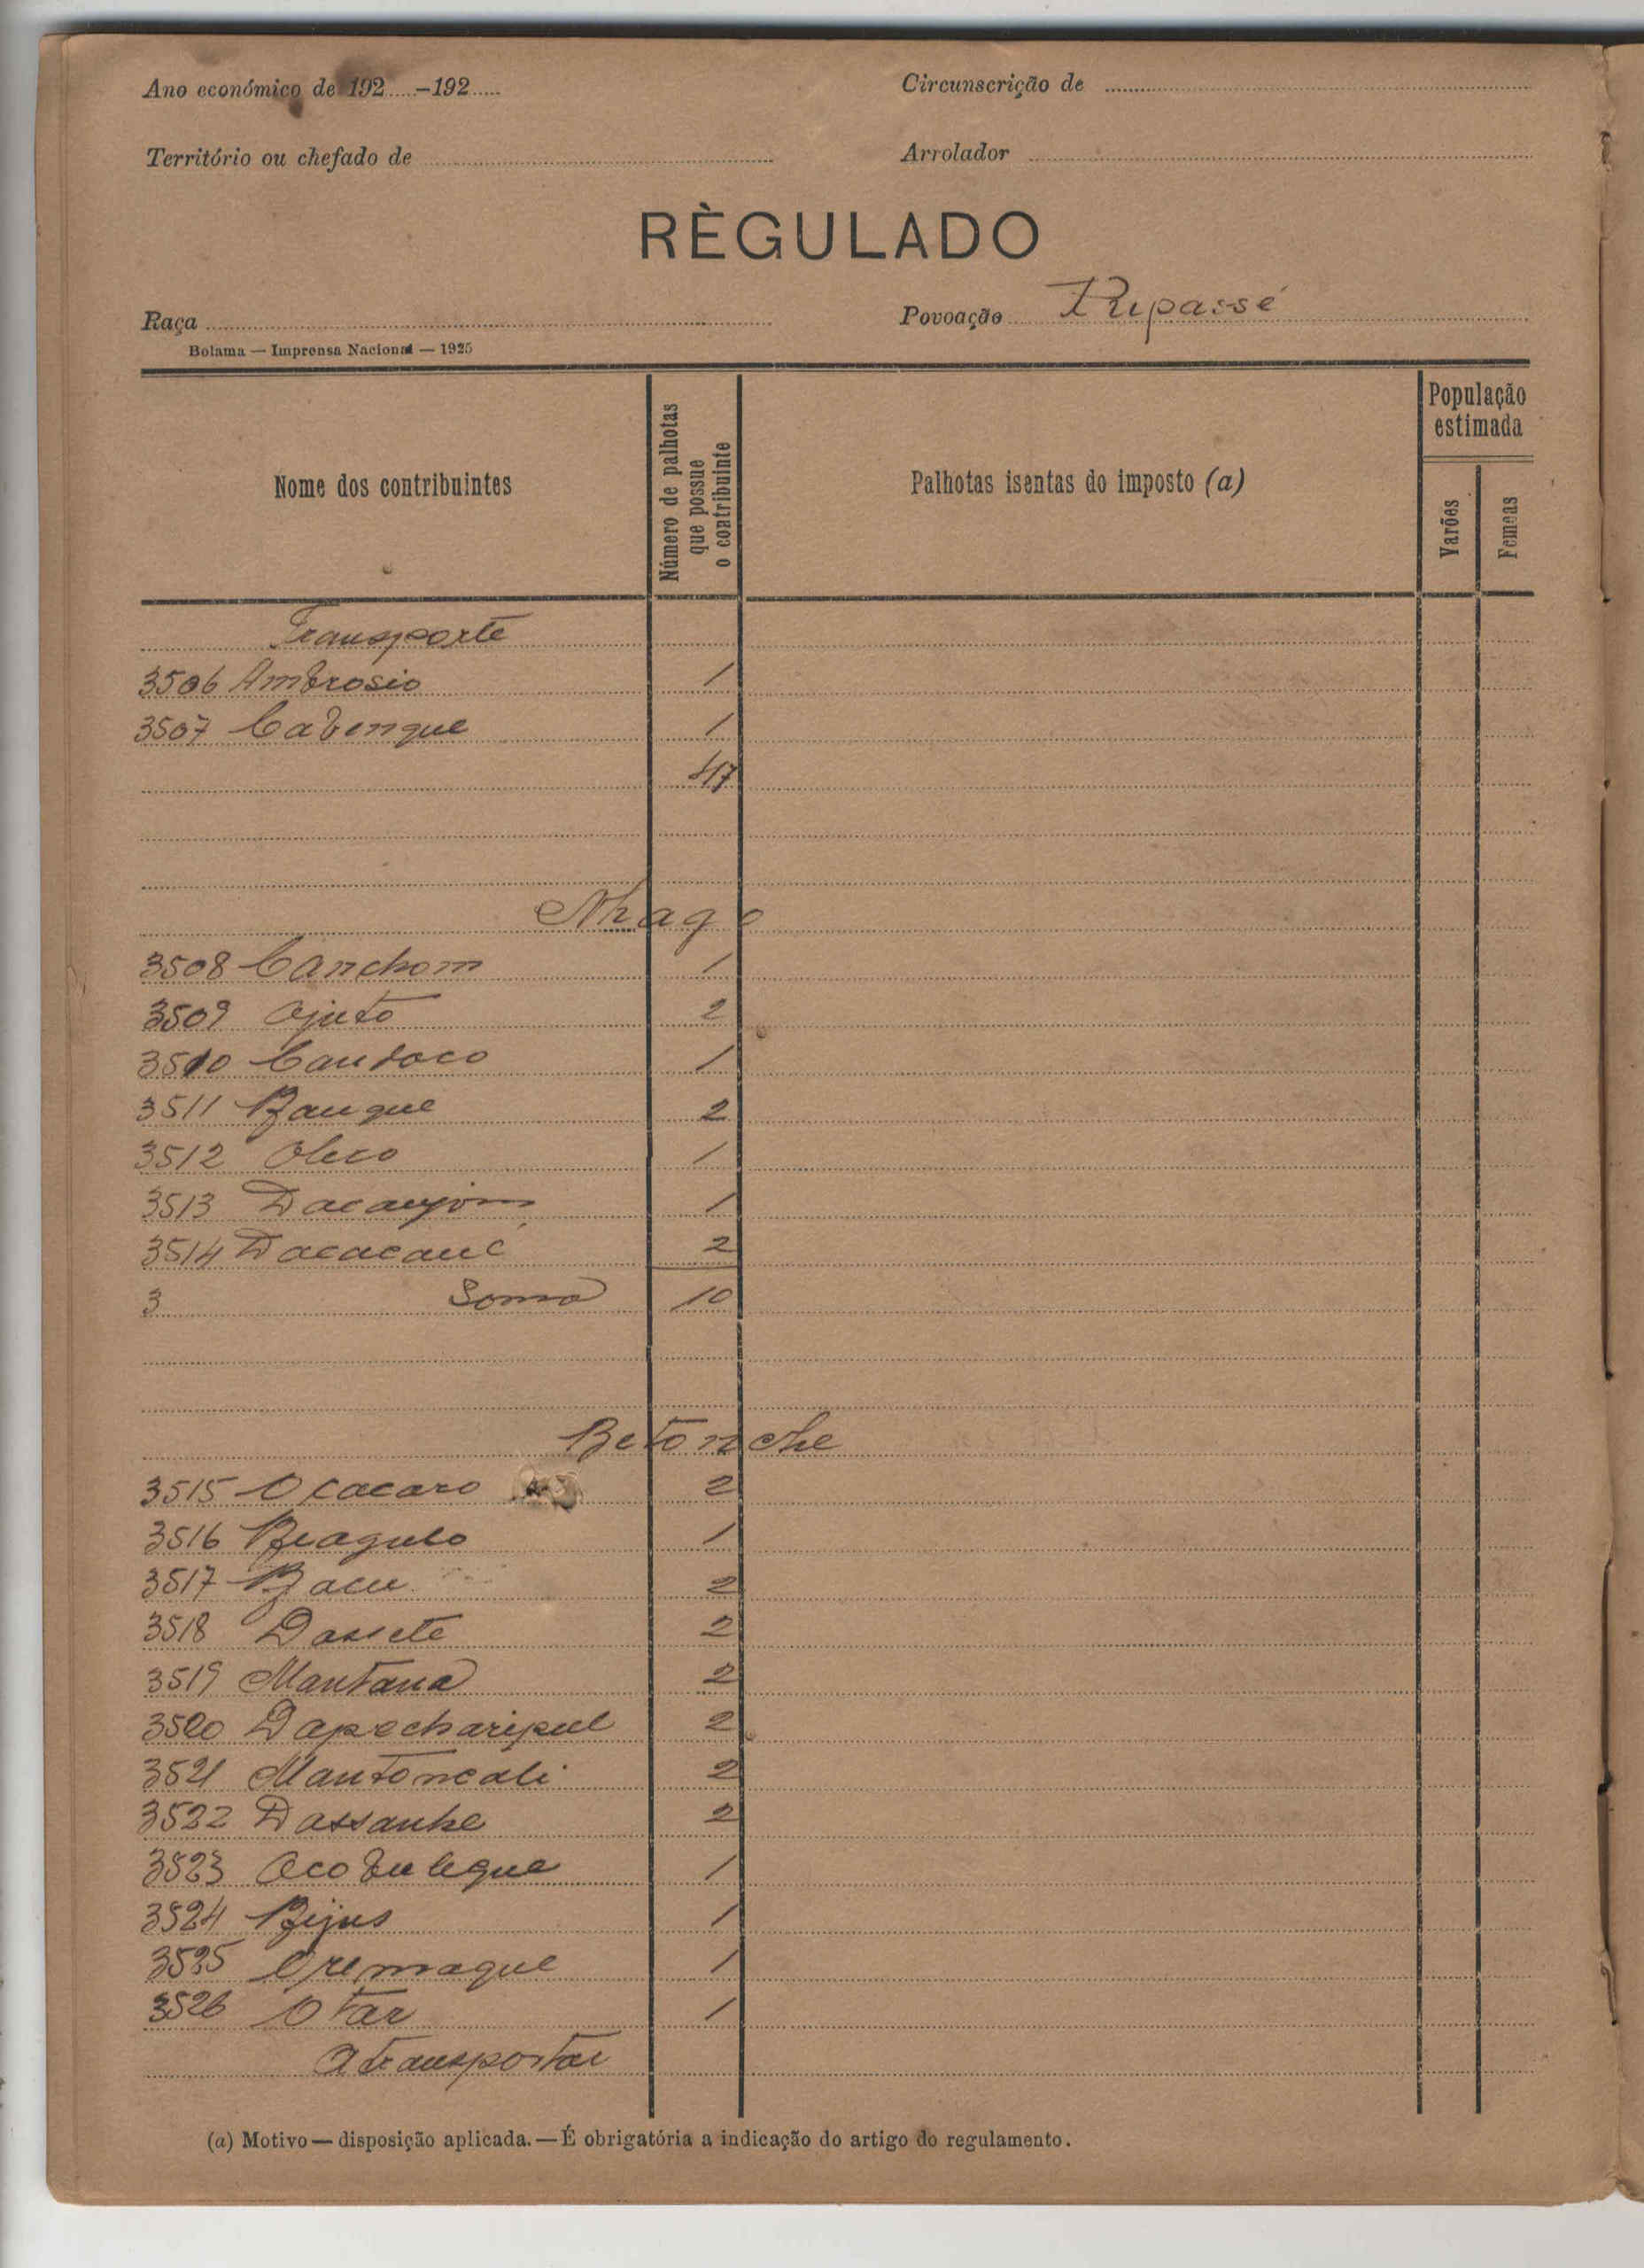 Ano económico de 192.....-192.....
Circunscrição de
Território ou chefado de
Arrolador
RÈGULADO
Raça
Povoação
Bolama — Imprensa Nacional — 1925
Nome dos contribuintes
Número de palhotas que possue o contribuinte
Palhotas isentas do imposto (a)
População estimada
Varões
Femeas
Transporte
3506 Ambrosio 1
3507 Cabingue 1
47
Nhago
3508 Canchom 1
3509 Ojuto 2
3510 1
3511 Bangue 2
3512 Oleco 1
3513 1
3514 2
3 Soma 10
Betonche
3515 Ocacaro 2
3516 Biagulo 1
3517 Bacu 2
3518 Dassete 2
3519 Mantana 2
3520 Dapecharipul 2
3521 Mantoncali 2
3522 Dassanhe 2
3523 Ocobulegue 1
3524 Bijus 1
3525 Oremaque 1
3526 Otar 1
A transportar
(a) Motivo — disposição aplicada. — É obrigatória a indicação do artigo do regulamento.